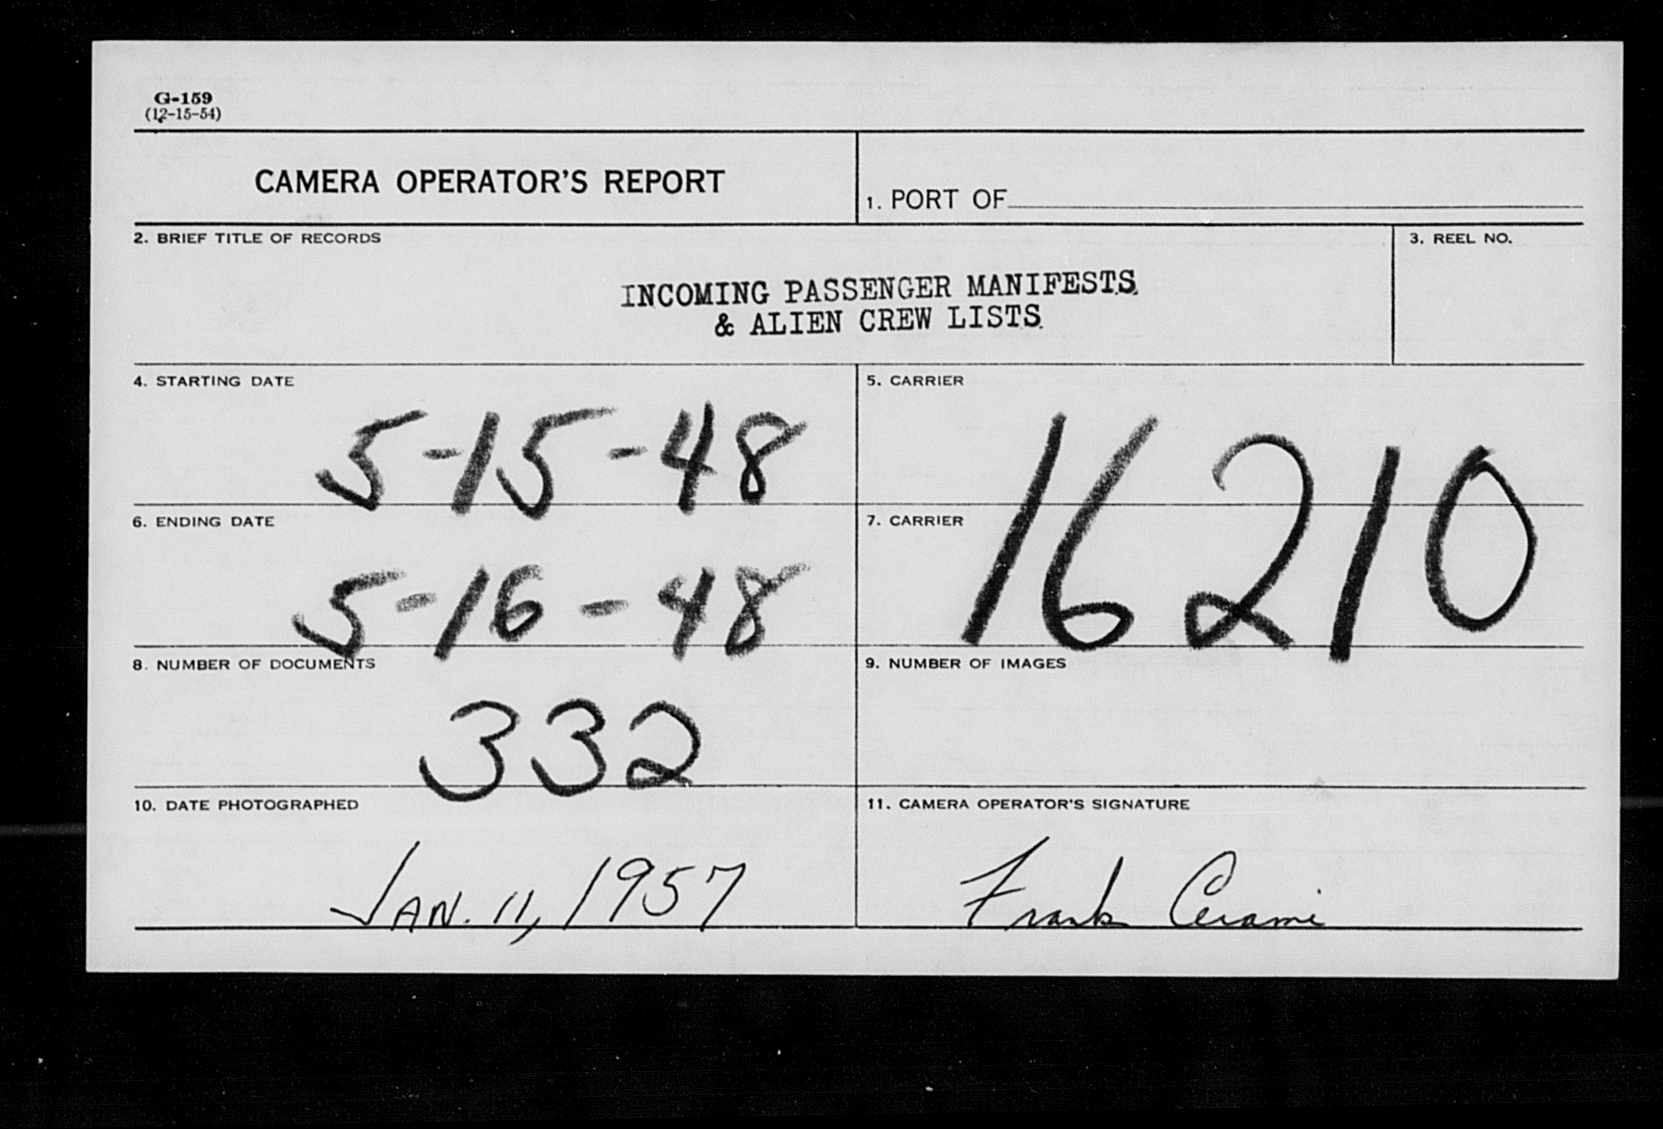 G-159
(12-15-54)
CAMERA OPERATOR'S REPORT
1. PORT OF
2. BRIEF TITLE OF RECORDS
3. REEL NO.
INCOMING PASSENGER MANIFESTS.
& ALIEN CREW LISTS.
4. STARTING DATE
5-15-48
5. CARRIER
16210
6. ENDING DATE
5-16-48
7. CARRIER
8. NUMBER OF DOCUMENTS
332
9. NUMBER OF IMAGES
10. DATE PHOTOGRAPHED
JAN. 11, 1957
11. CAMERA OPERATOR'S SIGNATURE
Frank Cerami